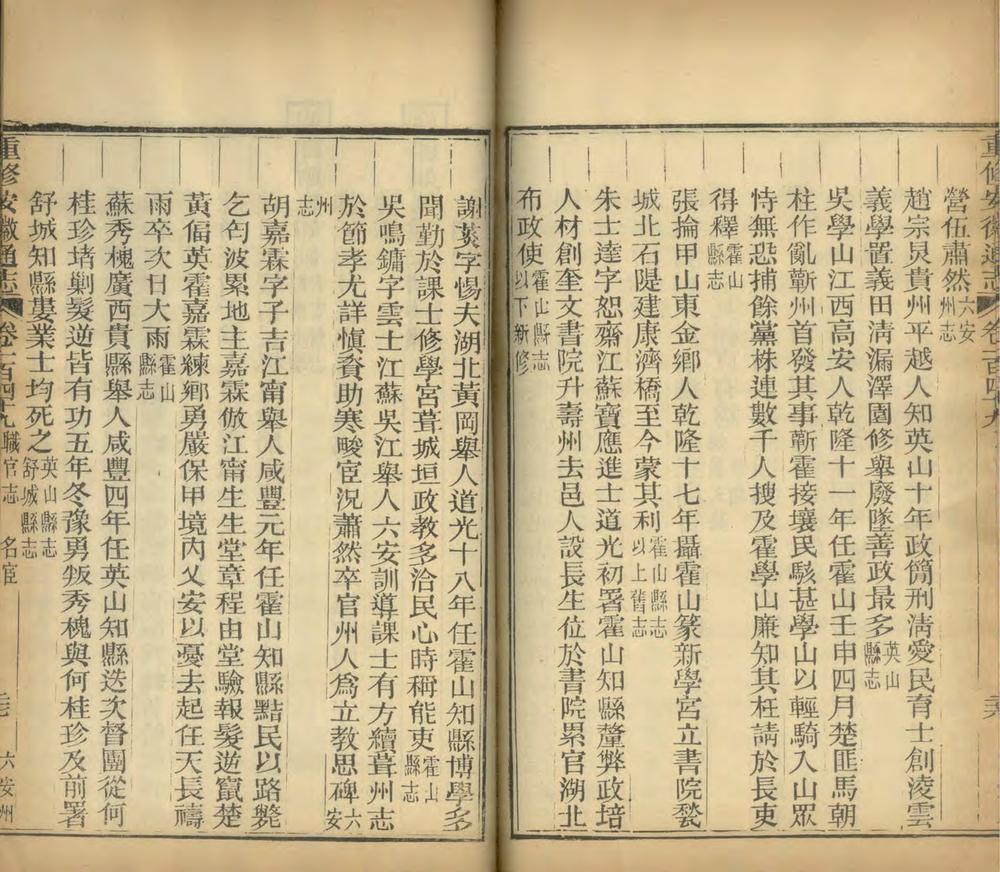 重修安徽通志 卷一百四十九
營伍肅然六安州志
趙宗炅貴州平越人知英山十年政簡刑淸愛民育士創淩雲
義學置義田淸漏澤園修舉廢墜善政最多英山縣志
吳學山江西高安人乾隆十一年任霍山壬申四月楚匪馬朝
柱作亂蘄州首發其事蘄霍接壤民駭甚學山以輕騎入山眾
恃無恐捕餘黨株連數千人搜及霍學山廉知其枉請於長吏
得釋霍山縣志
張掄甲山東金鄉人乾隆十七年攝霍山篆新學宮立書院甃
城北石隄建康濟橋至今蒙其利霍山縣志以上舊志
朱士達字恕齋江蘇寶應進士道光初署霍山知縣釐弊政培
人材創奎文書院升壽州去邑人設長生位於書院累官湖北
布政使霍山縣志以下新修
謝葵字惕夫湖北黃岡舉人道光十八年任霍山知縣博學多
聞勤於課士修學宮葺城垣政教多洽民心時稱能吏霍山縣志
吳鳴鏞字雲士江蘇吳江舉人六安訓導課士有方續葺州志
於節孝尤詳愼資助寒畯宦況蕭然卒官州人爲立教思碑六安
州志
胡嘉霖字子吉江甯舉人咸豐元年任霍山知縣黠民以路斃
乞匄波累地主嘉霖倣江甯生生堂章程由堂驗報髮逆竄楚
黃偪英霍嘉霖練鄉勇嚴保甲境內乂安以憂去起任天長禱
雨卒次日大雨霍山縣志
蘇秀槐廣西貴縣舉人咸豐四年任英山知縣迭次督團從何
桂珍堵剿髮逆皆有功五年冬豫勇叛秀槐與何桂珍及前署
舒城知縣婁業士均死之英山縣志舒城縣志
重修安徽通志 卷一百四十九 職官志 名宦 六安州